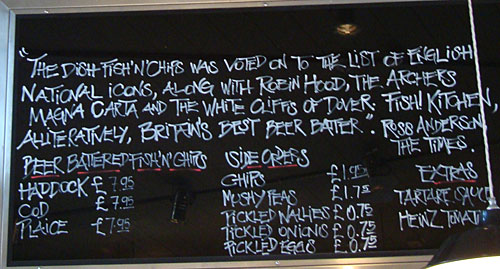 "THE DISH FISH'N'CHIPS WAS VOTED ON TO THE LIST OF ENGLISH
NATIONAL ICONS, ALONG WITH ROBIN HOOD, THE ARCHERS
MAGNA CARTA AND THE WHITE CLIFFS OF DOVER. FISH! KITCHEN,
ALLITERATIVELY, BRITAIN'S BEST BEER BATTER". ROSS ANDERSON
THE TIMES.
BEER BATTERED FISH'N'CHIPS
HADDOCK £7.95
COD £7.95
PLAICE £7.95
SIDE ORDERS
CHIPS £1.95
MUSHY PEAS £1.75
PICKLED WALLIES £0.75
PICKLED ONIONS £0.75
PICKLED EGGS £0.75
EXTRAS
TARTARE SAUCE
HEINZ